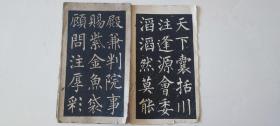 天下囊括川
注逢源會委
滔滔然莫能
殿兼判院事
賜紫金魚袋
顧問注厚彩